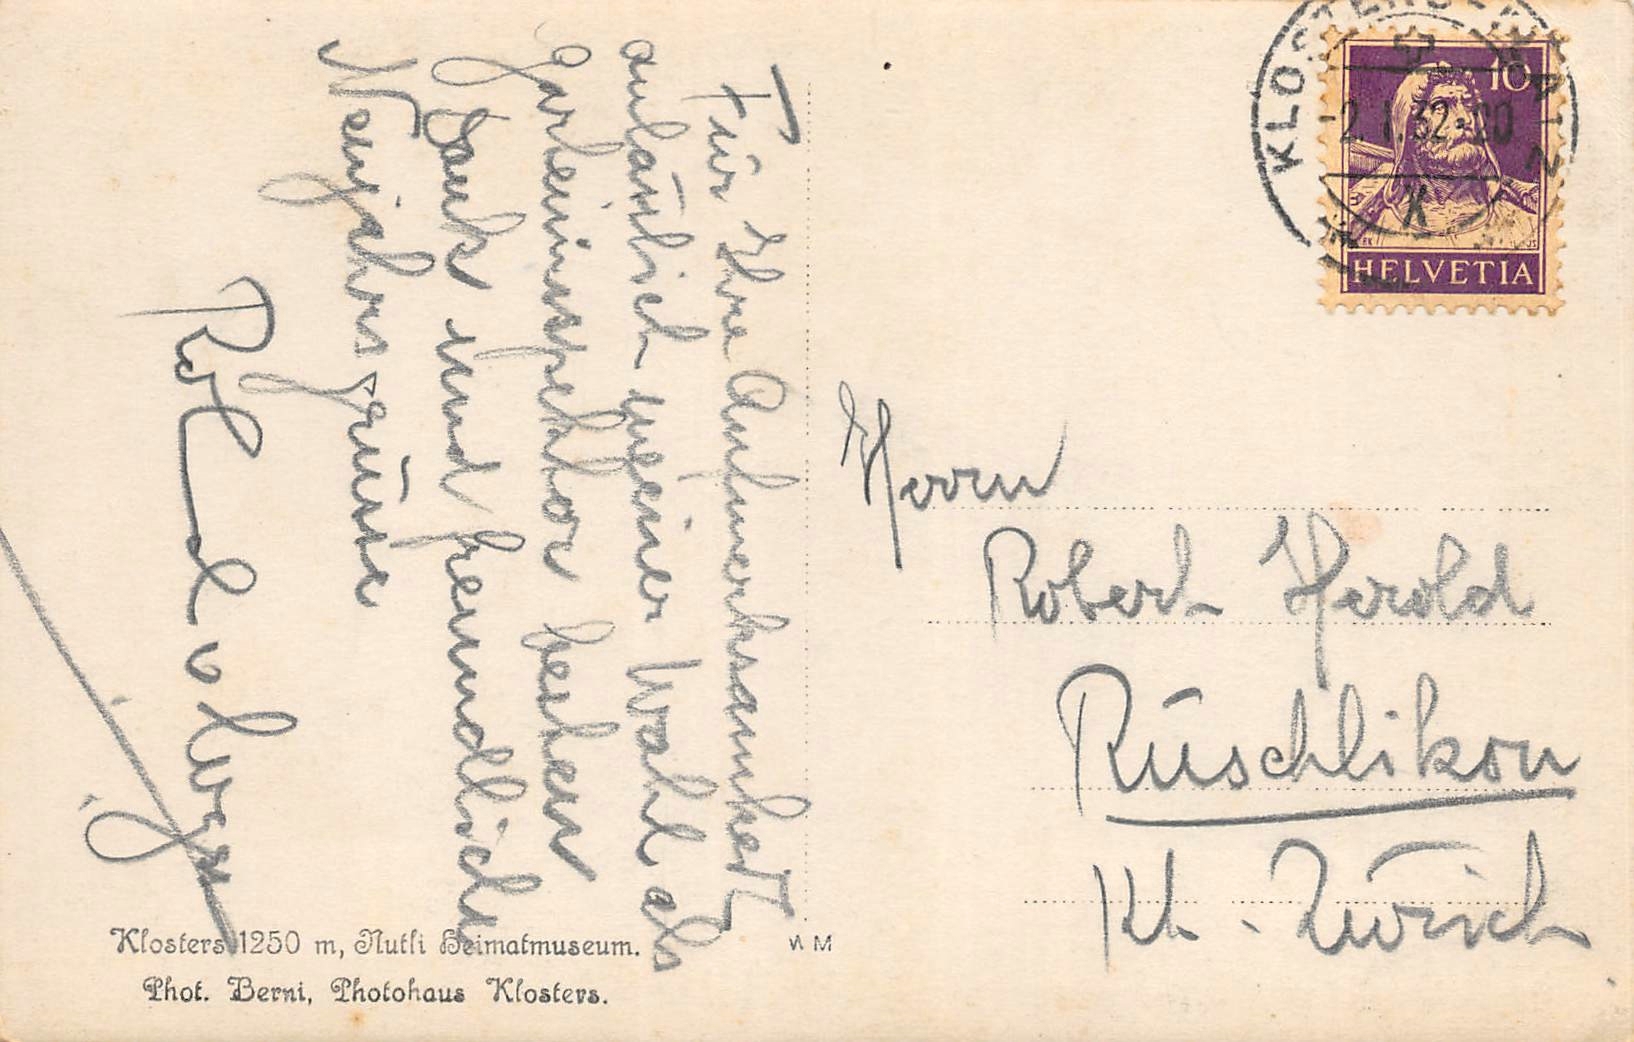 Für Ihre Aufmerksamkeit
anlässlich meiner Wahl als
Garteninspektor besten
Dank und freundliche
Neujahrs grüsse
Herrn
Robert Herold
Rüschlikon
Kt. Zürich
KLOSTERS
-2.I.32-20
10
HELVETIA
Klosters 1250 m, Nutli Heimatmuseum.
Phot. Berni, Photohaus Klosters.
W M